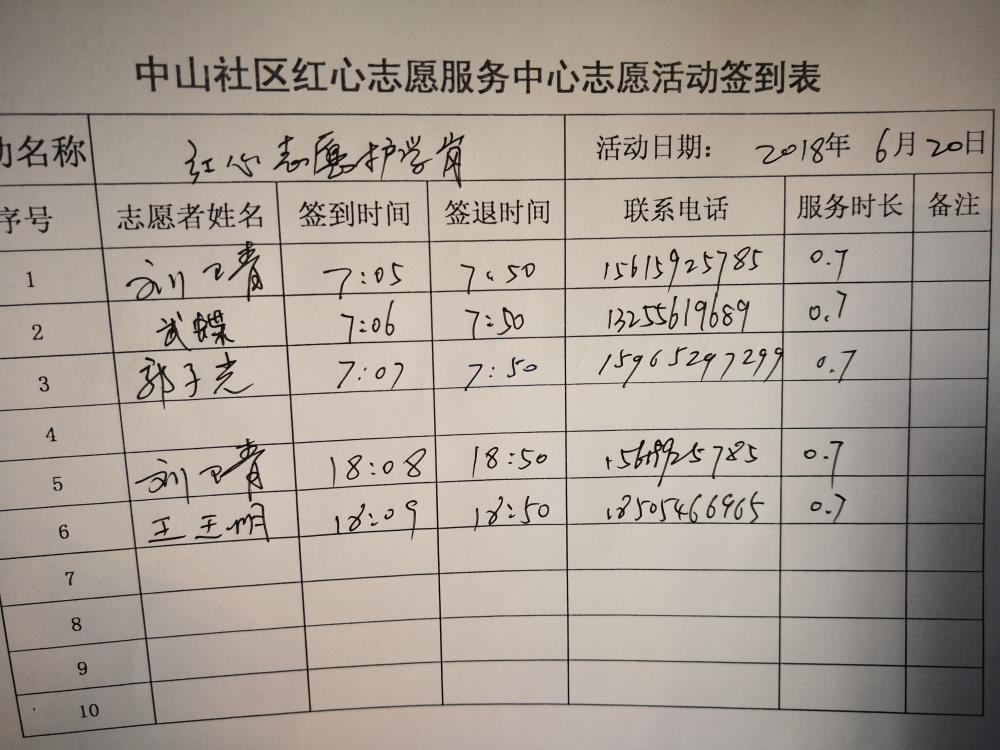 中山社区红心志愿服务中心志愿活动签到表
动名称 红心志愿护学岗 活动日期： 2018年 6月20日
序号 志愿者姓名 签到时间 签退时间 联系电话 服务时长 备注
1 刘卫青 7:05 7:50 15615925785 0.7
2 武蝶 7:06 7:50 13255619689 0.7
3 郭子光 7:07 7:50 15965297299 0.7
4
5 刘卫青 18:08 18:50 0.7
6 18:09 18:50 18505466965 0.7
7
8
9
10